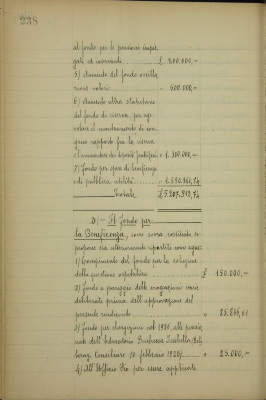 238
al fondo per le pensioni impie-
gati ed inservienti £ 200.000,-
5) Aumento del fondo oscilla
zione valori " 500.000,-
6) Aumento ultra statutario
del fondo di riserva, per age-
volare il mantenimento di con-
gruo rapporto fra la riserva
e l'ammontare dei depositi fruttiferi " £ 300.000,-
7) Fondo per opere di beneficenza
e di pubblica utilità
Totale
D) - Il fondo per
la Beneficenza, come sopra costituito, si
propone sia ulteriormente ripartito come segue:
1) Completamento del fondo per la soluzione
della questione ospitaliera £ 150.000.-
2) Fondo a pareggio delle erogazioni varie
deliberate prima dell'approvazione del
presente rendiconto " 25.266,61
3) Fondo per elargizioni nel 1920, alle
dell'Educatorio Principessa Isabella
Consigliare 10 febbraio 1920) " 25.000.-
4) All'Ufficio Pio per cure